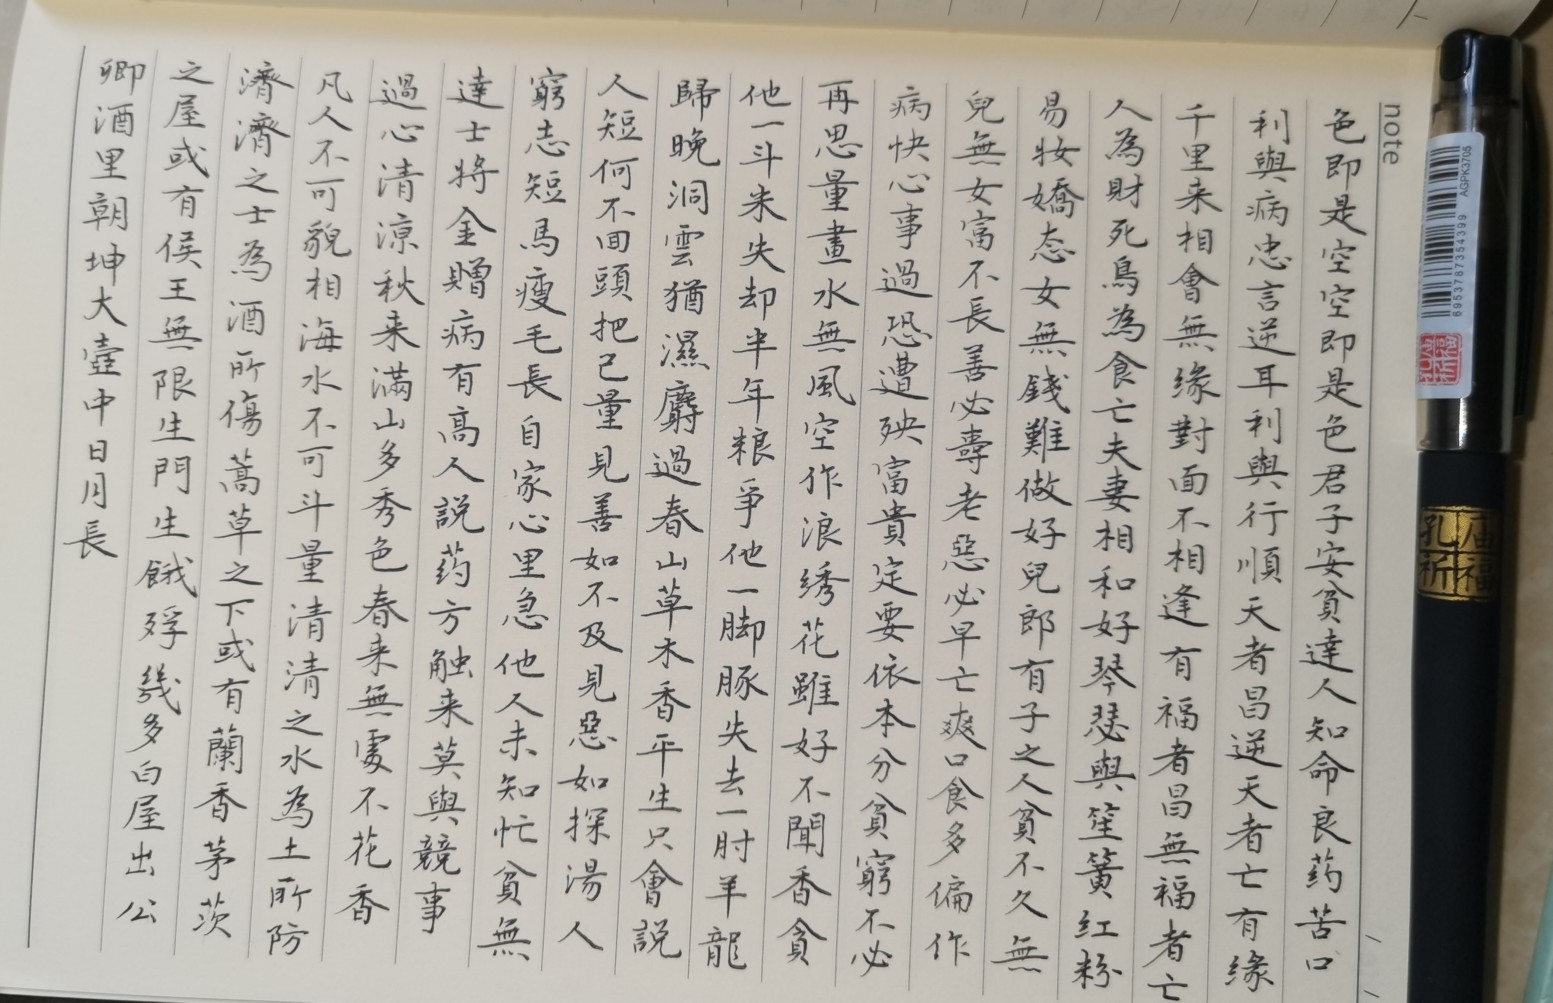 note
色即是空空即是色君子安貧達人知命良药苦口
利與病忠言逆耳利與行順天者昌逆天者亡有缘
千里来相會無缘對面不相逢有福者昌無福者亡
人為財死鳥為食亡夫妻相和好琴瑟與笙簧红粉
易妝嬌态女無錢難做好兒郎有子之人貧不久無
兒無女富不長善必壽老惡必早亡爽口食多偏作
病快心事過恐遭殃富貴定要依本分貧窮不必
再思量畫水無風空作浪绣花雖好不聞香貪
他一斗米失却半年粮爭他一脚豚失去一肘羊龍
歸晚洞雲猶濕麝過春山草木香平生只會說
人短何不回頭把己量見善如不及見惡如探湯人
窮志短馬瘦毛長自家心里急他人未知忙貧無
達士将金贈病有高人説药方触来莫與競事
過心清涼秋来满山多秀色春来無處不花香
凡人不可貌相海水不可斗量清清之水為土所防
濟濟之士為酒所傷蒿草之下或有蘭香茅茨
之屋或有侯王無限生門生餓殍幾多白屋出公
卿酒里朝坤大壺中日月長
AGPK3705
6953787354399
孔庙祈福